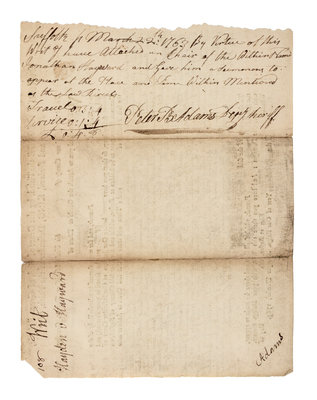 Suffolk ss March 2 1763 By Virtue of this
Writ I have Attached a Chair of the Within
Jonathan Hayward and gave him a Summons to
appear at the Place and Time Within Mentioned
as the Law Directs
Travel 0:
Service 0:1:4
Peter Adams Depy Sheriff
108 Writ
Hayden v Hayward
Adams